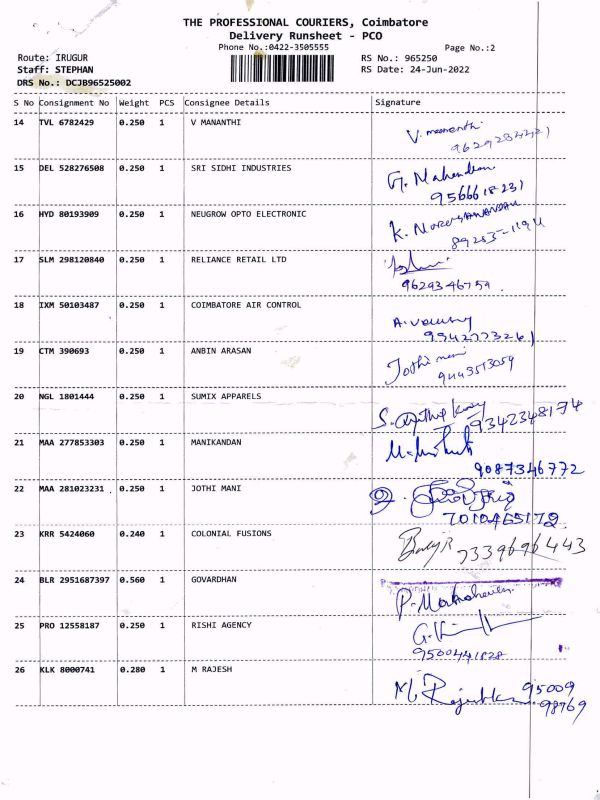 THE PROFESSIONAL COURIERS, Coimbatore
Delivery Runsheet - PCO
Phone No.:0422-3505555
Page No.:2
Route: IRUGUR
RS No.: 965250
Staff: STEPHAN
RS Date: 24-Jun-2022
DRS No.: DCJB96525002
S No Consignment No Weight PCS Consignee Details Signature
14 TVL 6782429 0.250 1 V MANANTHI
15 DEL 528276508 0.250 1 SRI SIDHI INDUSTRIES G. Mahendran
9566618231
16 HYD 80193909 0.250 1 NEUGROW OPTO ELECTRONIC
17 SLM 298120840 0.250 1 RELIANCE RETAIL LTD
9629346759
18 IXM 50103487 0.250 1 COIMBATORE AIR CONTROL
9942773261
19 CTM 390693 0.250 1 ANBIN ARASAN Jothi mani
9443513059
20 NGL 1801444 0.250 1 SUMIX APPARELS
9342348174
21 MAA 277853303 0.250 1 MANIKANDAN
9087346772
22 MAA 281023231 0.250 1 JOTHI MANI
7010465172
23 KRR 5424060 0.240 1 COLONIAL FUSIONS 7339696443
24 BLR 2951687397 0.560 1 GOVARDHAN
25 PRO 12558187 0.250 1 RISHI AGENCY
9500441828
26 KLK 8000741 0.280 1 M RAJESH 95009
98769